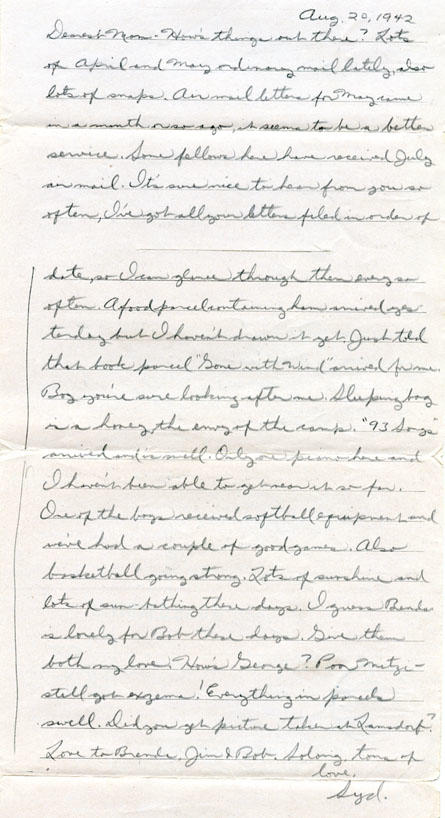 Aug. 20, 1942
Dearest Mom - How's things out there? Lots
of April and May ordinary mail lately, also
lots of snaps. Air mail letters for May came
in a month or so ago, it seems to be a better
service. Some fellows here have received July
air mail. It's sure nice to hear from you so
often, I've got all your letters filed in order of
date, so I can glance through them every so
often. A food parcel containing ham arrived yes-
terday but I haven't drawn it yet. Just told
that book parcel "Gone with Wind" arrived for me.
Boy you're sure looking after me. Sleeping bag
is a honey, the envy of the camp. "93 Songs"
arrived and is swell. Only one piano here and
I haven't been able to get near it so far.
One of the boys received softball equipment and
we've had a couple of good games. Also
basketball going strong. Lots of sunshine and
lots of sun-bathing these days. I guess Brenda
is lonely for Bob these days. Give them
both my love. How's George? Poor Mitzi -
still got exzema! Everything in parcels
swell. Did you get picture taken at Lamsdorf?
Love to Brenda, Jim & Bob. So long, tons of
love,
Syd.